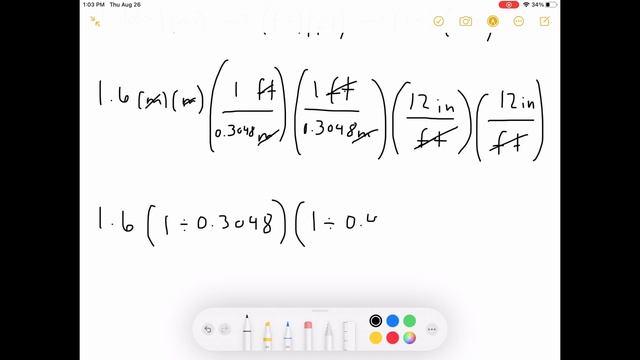 1:03 PM Thu Aug 26 34%
1.6 (m)(m) (1 ft / 0.3048 m) (1 ft / 0.3048 m) (12 in / ft) (12 in / ft)
1.6 (1 ÷ 0.3048) (1 ÷ 0.